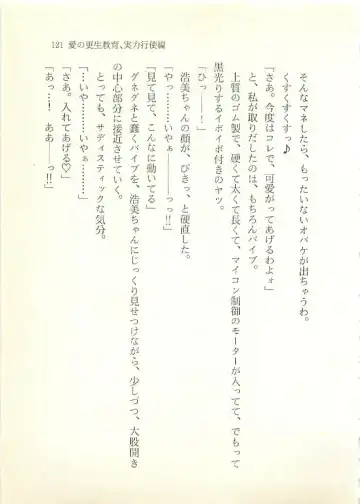 121 愛の更生教育、実力行使編
そんなマネしたら、もったいないオバケが出ちゃうわ。
くすくすくすっ♪
「さあ。今度はコレで、可愛がってあげるわよォ」
と、私が取りだしたのは、もちろんバイブ。
上質のゴム製で、硬くて太くて長くて、マイコン制御のモーターが入ってて、でもって
黒光りするイボイボ付きのヤツ。
「ひっ――！」
浩美ちゃんの顔が、びきっ、と硬直した。
「やっ………いやぁ――――っっ!!」
「見て見て、こんなに動いてる」
グネグネと蠢くバイブを、浩美ちゃんにじっくり見せつけながら、少しづつ、大股開き
の中心部分に接近させていく。
とっても、サディスティックな気分。
「…いや……いやぁ………」
「さあ。入れてあげる♡」
「あっ…！　ああ――っ!!」